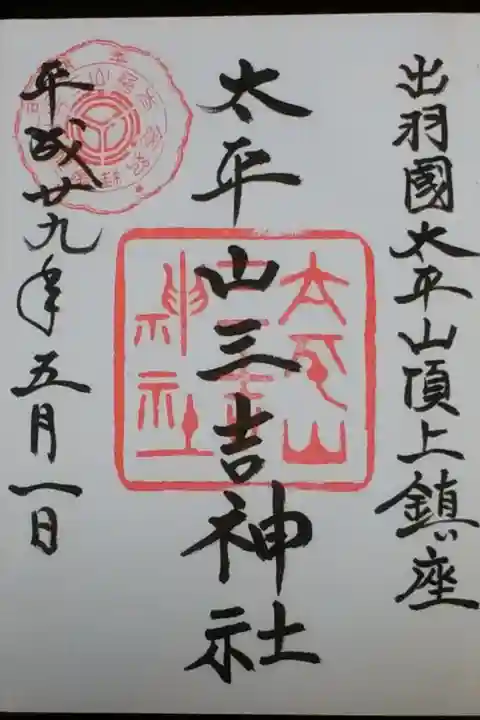 出羽國太平山頂上鎮座
太平山三吉神社
平成廿九年五月一日
太平山
三吉
神社